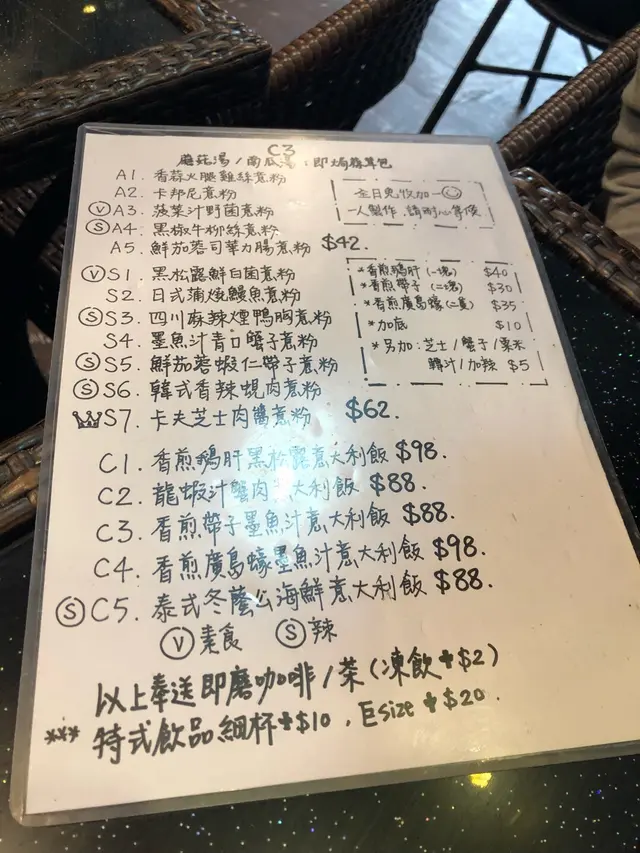 C3
蘑菇湯/南瓜湯:即焗蒜茸包
A1. 香蒜火腿雞絲意粉
A2. 卡邦尼意粉
Ⓥ A3. 菠菜汁野菌意粉
Ⓢ A4. 黑椒牛柳絲意粉
A5. 鮮茄蓉司華力腸意粉 $42.
全日免收加一☺
一人製作,請耐心等候
Ⓥ S1. 黑松露鮮白菌意粉
S2. 日式蒲燒鰻魚意粉
Ⓢ S3. 四川麻辣煙鴨胸意粉
S4. 墨魚汁青口蟹子意粉
Ⓢ S5. 鮮茄蓉蝦仁帶子意粉
Ⓢ S6. 韓式香辣蜆肉意粉
S7. 卡夫芝士肉醬意粉 $62.
*香煎鵝肝(一塊) $40
*香煎帶子(二塊) $30
*香煎廣島蠔(二隻) $35
*加底 $10
*另加:芝士/蟹子/粟米
轉汁/加辣 $5
C1. 香煎鵝肝黑松露意大利飯 $98.
C2. 龍蝦汁蟹肉意大利飯 $88.
C3. 香煎帶子墨魚汁意大利飯 $88.
C4. 香煎廣島蠔墨魚汁意大利飯 $98.
Ⓢ C5. 泰式冬蔭公海鮮意大利飯 $88.
Ⓥ素食 Ⓢ辣
以上奉送即磨咖啡/茶(凍飲+$2)
*** 特式飲品細杯+$10,巨size+$20.